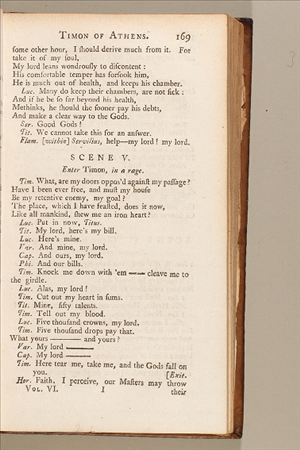 TIMON OF ATHENS. 169
ſome other hour, I ſhould derive much from it. For
take it of my ſoul,
My lord leans wondrouſly to diſcontent:
His comfortable temper has forſook him,
He is much out of health, and keeps his chamber.
Luc. Many do keep their chambers, are not ſick:
And if he be ſo far beyond his health,
Methinks, he ſhould the ſooner pay his debts,
And make a clear way to the Gods.
Ser. Good Gods!
Tit. We cannot take this for an anſwer.
Flam. [within] Servilius, help—my lord! my lord.
SCENE V.
Enter Timon, in a rage.
Tim. What, are my doors oppos'd againſt my paſſage?
Have I been ever free, and muſt my houſe
Be my retentive enemy, my goal?
The place, which I have feaſted, does it now,
Like all mankind, ſhew me an iron heart?
Luc. Put in now, Titus.
Tit. My lord, here's my bill.
Luc. Here's mine.
Var. And mine, my lord.
Cap. And ours, my lord.
Phi. And our bills.
Tim. Knock me down with 'em —— cleave me to
the girdle.
Luc. Alas, my lord!
Tim. Cut out my heart in ſums.
Tit. Mine, fifty talents.
Tim. Tell out my blood.
Luc. Five thouſand crowns, my lord.
Tim. Five thouſand drops pay that.
What yours ——— and yours?
Var. My lord ———
Cap. My lord ———
Tim. Here tear me, take me, and the Gods fall on
you. [Exit.
Hor. Faith, I perceive, our Maſters may throw
VOL. VI. I their